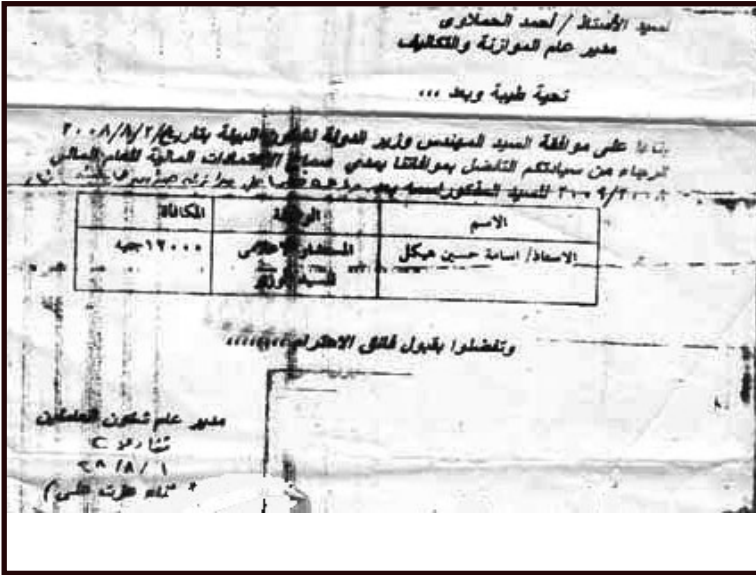 السيد الأستاذ / أحمد الحملاوى
مدير عام الموازنة والتكاليف
تحية طيبة وبعد ،،،
بناءا على موافقة السيد المهندس وزير الدولة لشئون البيئة بتاريخ ٢٠٠٨/٨/٢
الرجاء من سيادتكم التفضل بموافقتنا بمدي سماح الاعتمادات المالية للعام المالى
٢٠٠٩/٢٠٠٨ للسيد المذكور اسمه بعد
الاسم الوظيفة المكافأة
الاستاذ/ اسامة حسين هيكل المستشار الاعلامى ١٢٠٠٠ جنيه
للسيد الوزير
وتفضلوا بقبول فائق الاحترام ،،،،،،،،
مدير عام شئون العاملين
٨/١